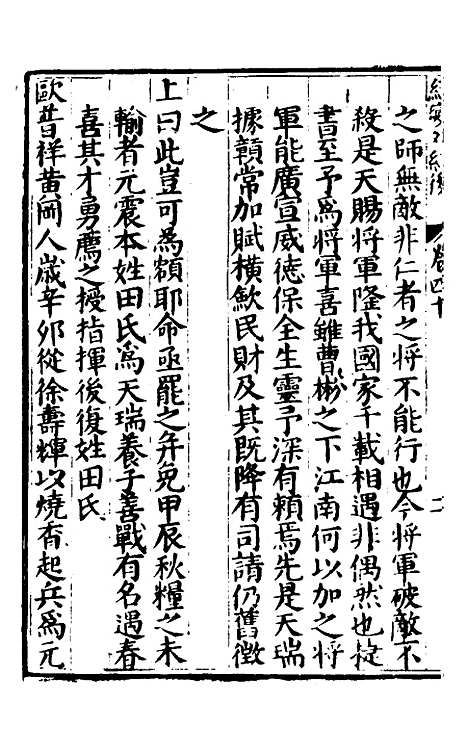 之師無敵非仁者之將不能行也今將軍破敵不
殺是天賜將軍隆我國家千載相遇非偶然也捷
書至予爲將軍喜雖曹彬之下江南何以加之將
軍能廣宣威德保全生靈予深有賴焉先是天瑞
據贛常加賦橫斂民財及其既降有司請仍舊徵
之
上曰此豈可為額耶命亟罷之并免甲辰秋糧之未
輸者元震本姓田氏爲天瑞養子善戰有名遇春
喜其才勇薦之授指揮後復姓田氏
歐普祥黄岡人歲辛卯從徐壽輝以燒香起兵爲元